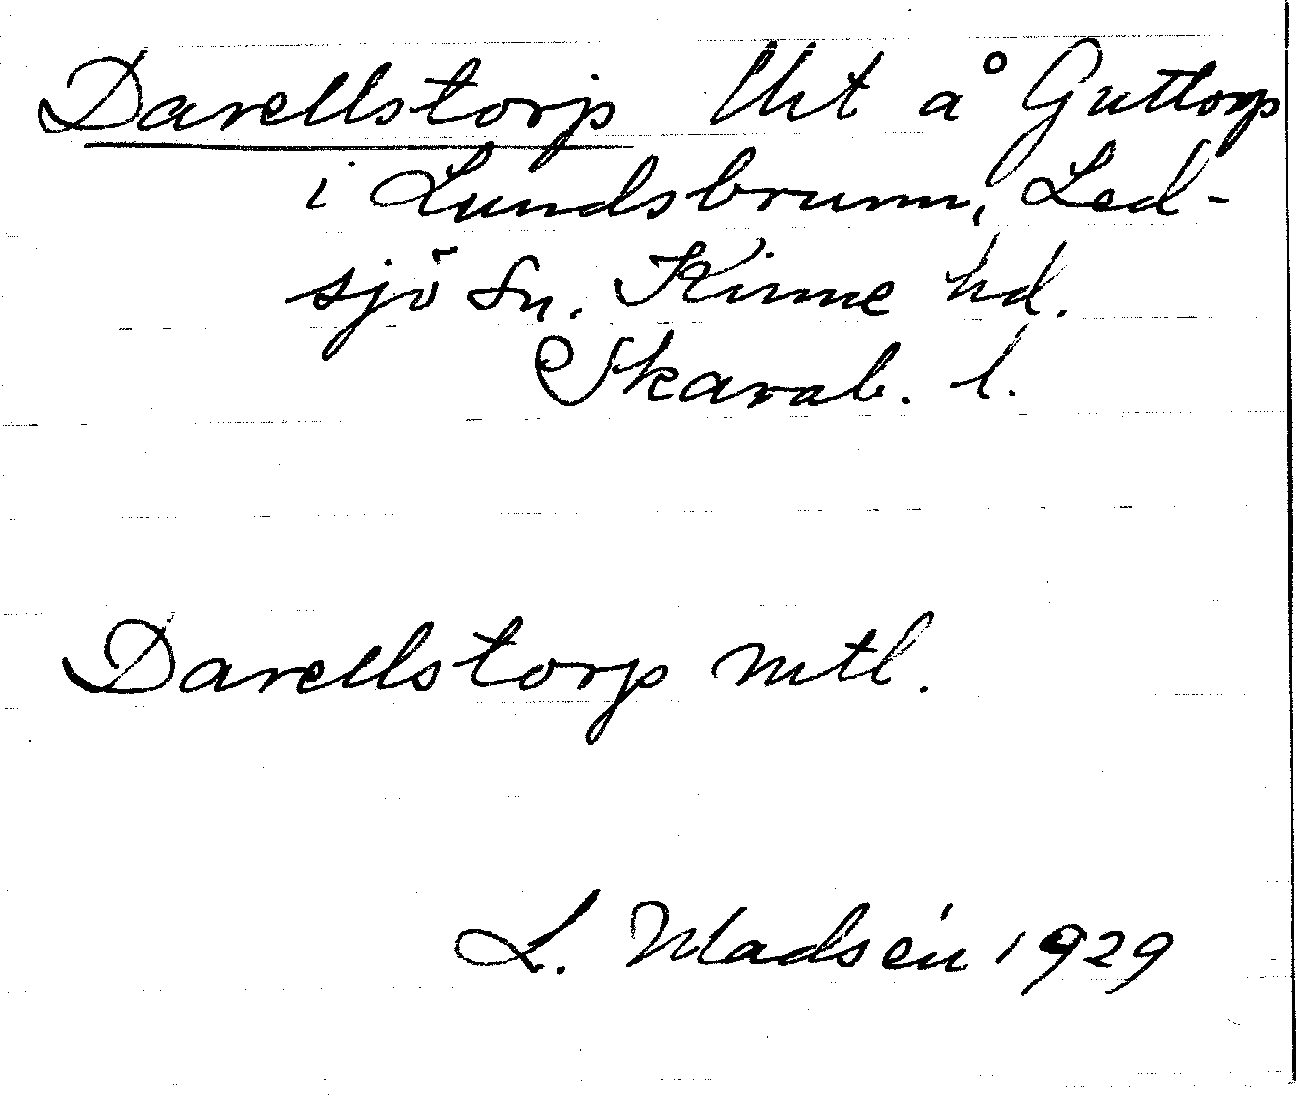 Darellstorp lht å Guttorp
i Lundsbrunn, Led-
sjö sn. Kinne hd.
Skarab. l.
Darellstorp mtl.
L. Madsén 1929